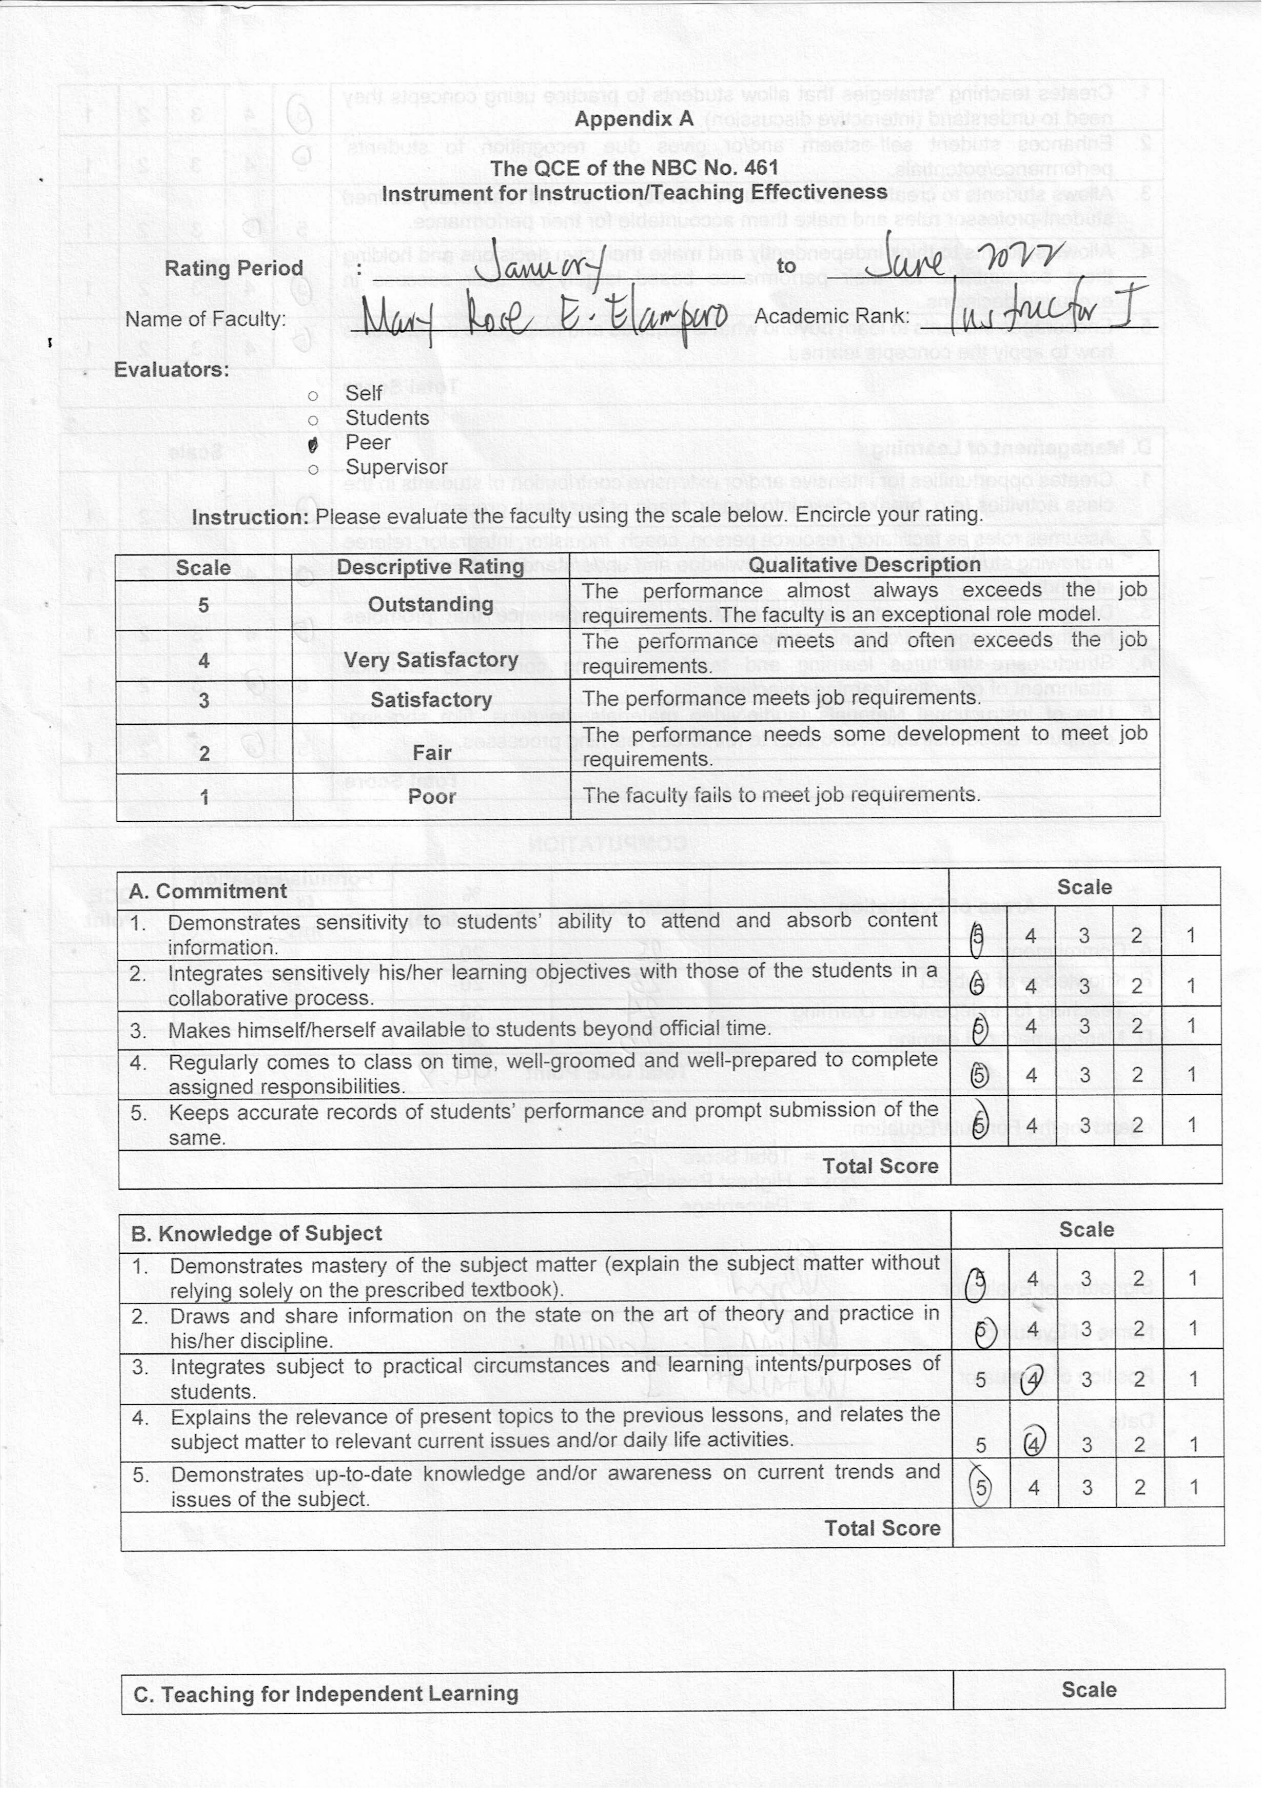 Appendix A
The QCE of the NBC No. 461
Instrument for Instruction/Teaching Effectiveness
Rating Period : January to June 2022
Name of Faculty: Mary Rose E. Elamparo Academic Rank: Instructor I
Evaluators:
Self
Students
Peer
Supervisor
Instruction: Please evaluate the faculty using the scale below. Encircle your rating.
Scale Descriptive Rating Qualitative Description
5 Outstanding The performance almost always exceeds the job
requirements. The faculty is an exceptional role model.
4 Very Satisfactory The performance meets and often exceeds the job
requirements.
3 Satisfactory The performance meets job requirements.
2 Fair The performance needs some development to meet job
requirements.
1 Poor The faculty fails to meet job requirements.
A. Commitment Scale
1. Demonstrates sensitivity to students' ability to attend and absorb content
information. 5 4 3 2 1
2. Integrates sensitively his/her learning objectives with those of the students in a
collaborative process. 5 4 3 2 1
3. Makes himself/herself available to students beyond official time. 5 4 3 2 1
4. Regularly comes to class on time, well-groomed and well-prepared to complete
assigned responsibilities. 5 4 3 2 1
5. Keeps accurate records of students' performance and prompt submission of the
same. 5 4 3 2 1
Total Score
B. Knowledge of Subject Scale
1. Demonstrates mastery of the subject matter (explain the subject matter without
relying solely on the prescribed textbook). 5 4 3 2 1
2. Draws and share information on the state on the art of theory and practice in
his/her discipline. 5 4 3 2 1
3. Integrates subject to practical circumstances and learning intents/purposes of
students. 5 4 3 2 1
4. Explains the relevance of present topics to the previous lessons, and relates the
subject matter to relevant current issues and/or daily life activities. 5 4 3 2 1
5. Demonstrates up-to-date knowledge and/or awareness on current trends and
issues of the subject. 5 4 3 2 1
Total Score
C. Teaching for Independent Learning Scale